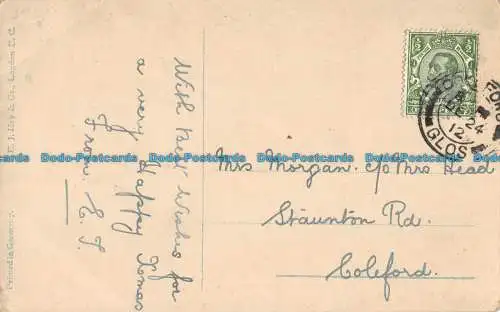 With best Wishes for
a very Happy Xmas
From E. J.
Mrs Morgan. c/o Mrs Head
Staunton Rd.
Coleford.
GLOS
24
12
E. J. Hey & Co., London E. C.
Printed in Germany.
Dodo-Postcards Dodo-Postcards Dodo-Postcards Dodo-Postcards Dodo-Postcards